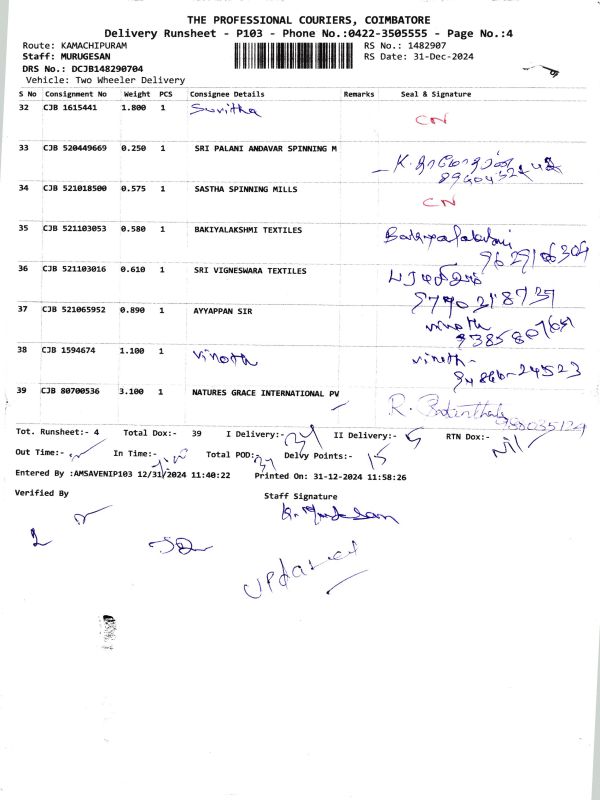 THE PROFESSIONAL COURIERS, COIMBATORE
Delivery Runsheet - P103 - Phone No.:0422-3505555 - Page No.:4
Route: KAMACHIPURAM RS No.: 1482907
Staff: MURUGESAN RS Date: 31-Dec-2024
DRS No.: DCJB148290704
Vehicle: Two Wheeler Delivery
S No Consignment No Weight PCS Consignee Details Remarks Seal & Signature
32 CJB 1615441 1.800 1 Suvitha CN
33 CJB 520449669 0.250 1 SRI PALANI ANDAVAR SPINNING M
34 CJB 521018500 0.575 1 SASTHA SPINNING MILLS CN
35 CJB 521103053 0.580 1 BAKIYALAKSHMI TEXTILES
36 CJB 521103016 0.610 1 SRI VIGNESWARA TEXTILES
37 CJB 521065952 0.890 1 AYYAPPAN SIR vinoth
38 CJB 1594674 1.100 1 vinoth vinoth
39 CJB 80700536 3.100 1 NATURES GRACE INTERNATIONAL PV
Tot. Runsheet:- 4 Total Dox:- 39 I Delivery:- 34 II Delivery:- 5 RTN Dox:- Nil
Out Time:- In Time:- Total POD: 34 Delvy Points:- 15
Entered By :AMSAVENIP103 12/31/2024 11:40:22 Printed On: 31-12-2024 11:58:26
Verified By Staff Signature
updated